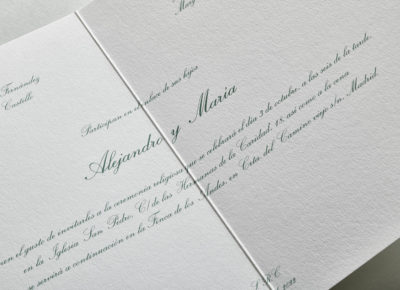 Fernández
Castillo
Participan en el enlace de sus hijos
Alejandro y María
el gusto de invitarles a la ceremonia religiosa que se celebrará el día 3 de octubre, a las seis de la tarde,
en la Iglesia San Pedro, C/ de las Hermanas de la Caridad, 18, así como a la cena
se servirá a continuación en la Finca de los Andes, en Crta. del Camino viejo s/n. Madrid.
S.R.C.